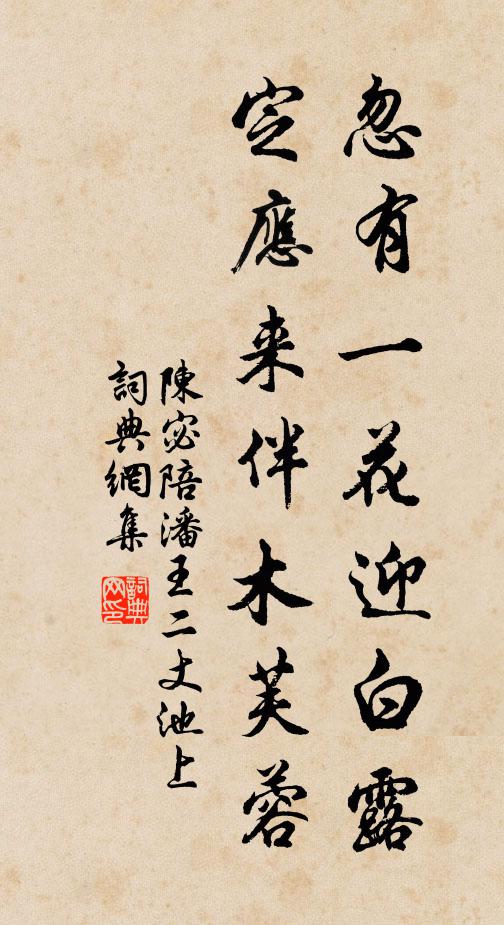 忽有一花迎白露
定應来伴木芙蓉
陳宓陪潘王二丈池上
詞典網集
詞典
网印